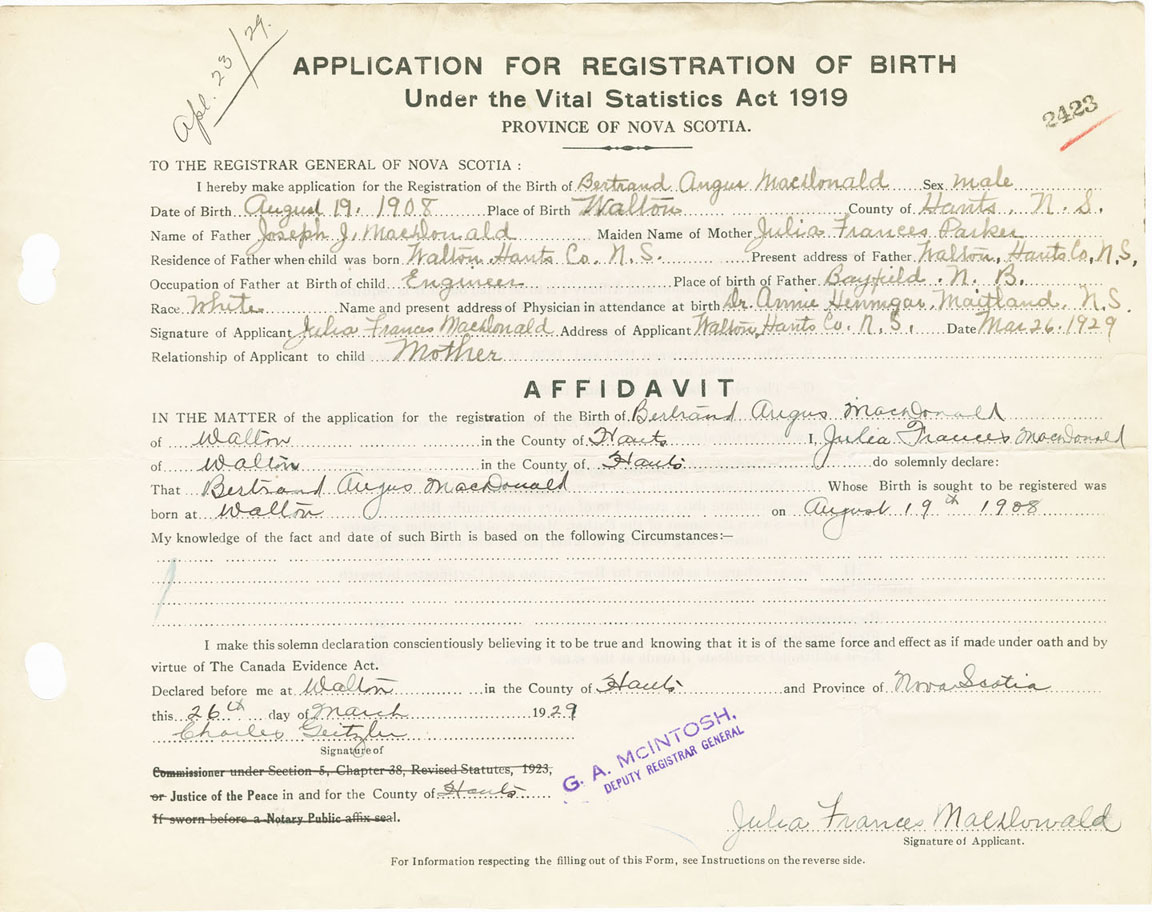 Apl. 23/29.
APPLICATION FOR REGISTRATION OF BIRTH
Under the Vital Statistics Act 1919
PROVINCE OF NOVA SCOTIA.
2423
TO THE REGISTRAR GENERAL OF NOVA SCOTIA :
I hereby make application for the Registration of the Birth of Bertrand Angus MacDonald Sex male
Date of Birth August 19, 1908 Place of Birth Walton County of Hants, N. S.
Name of Father Joseph J. MacDonald Maiden Name of Mother Julia Frances Parker
Residence of Father when child was born Walton, Hants Co. N. S. Present address of Father Walton, Hants Co, N. S,
Occupation of Father at Birth of child Engineer Place of birth of Father Bayfield, N. B.
Race White Name and present address of Physician in attendance at birth Dr. Annie Hennigar, Maitland, N.S.
Signature of Applicant Julia Frances MacDonald Address of Applicant Walton, Hants Co. N. S. Date Mar 26, 1929
Relationship of Applicant to child Mother
AFFIDAVIT
IN THE MATTER of the application for the registration of the Birth of Bertrand Angus MacDonald
of Walton in the County of Hants I, Julia Frances MacDonald
of Walton in the County of Hants do solemnly declare:
That Bertrand Angus MacDonald Whose Birth is sought to be registered was
born at Walton on August 19th 1908
My knowledge of the fact and date of such Birth is based on the following Circumstances:—
I make this solemn declaration conscientiously believing it to be true and knowing that it is of the same force and effect as if made under oath and by
virtue of The Canada Evidence Act.
Declared before me at Walton in the County of Hants and Province of Nova Scotia
this 26th day of March 1929
Charles Geitzler
Signature of
Commissioner under Section 5, Chapter 38, Revised Statutes, 1923,
or Justice of the Peace in and for the County of Hants
If sworn before a Notary Public affix seal.
G. A. McINTOSH,
DEPUTY REGISTRAR GENERAL
Julia Frances MacDonald
Signature of Applicant.
For Information respecting the filling out of this Form, see Instructions on the reverse side.